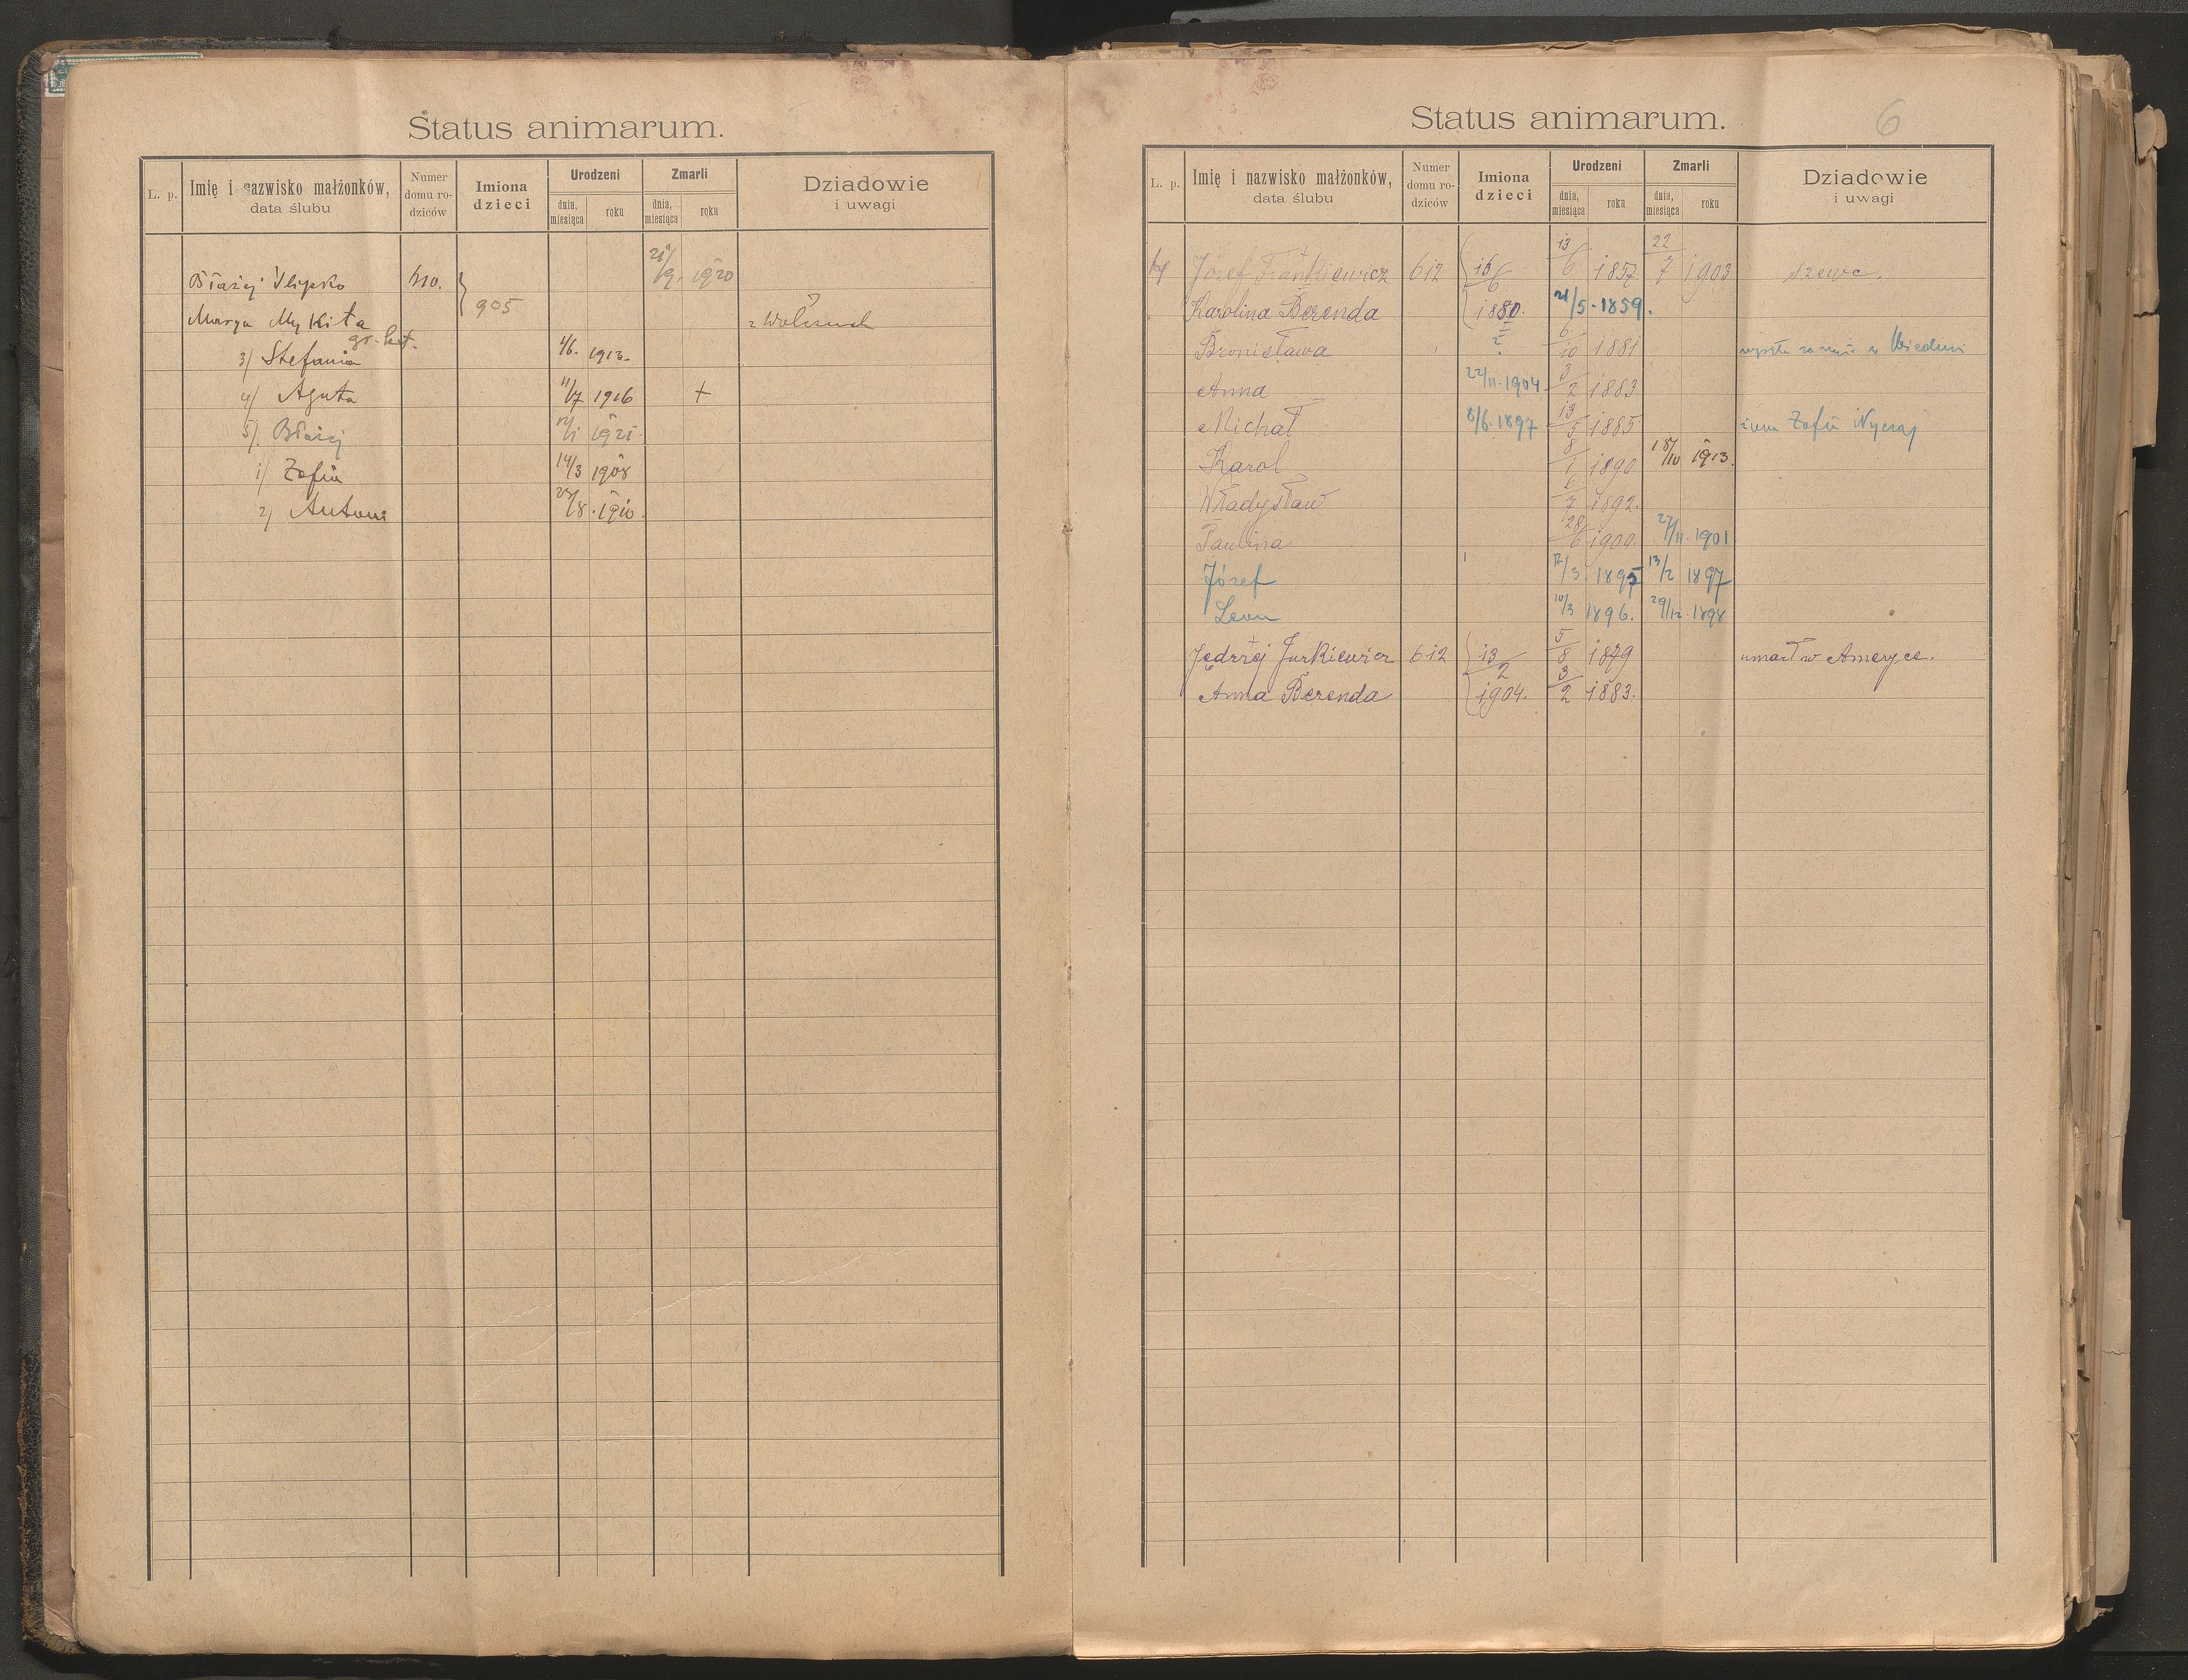 Status animarum.
L. p. Imię i nazwisko małżonków, data ślubu Numer domu rodziców Imiona dzieci Urodzeni dnia, miesiąca roku Zmarli dnia, miesiąca roku Dziadowie i uwagi
Błażej 1920
Marya Mykita 905
gr. kat.
3) Stefania 4/6. 1913.
4) Agata 11/7 1916 +
5) Błażej
1) Zofia 14/3 1908
2) Antoni /8. 1910.
Status animarum. 6
L. p. Imię i nazwisko małżonków, data ślubu Numer domu rodziców Imiona dzieci Urodzeni dnia, miesiąca roku Zmarli dnia, miesiąca roku Dziadowie i uwagi
Józef Frańkiewicz 612 13/6 1857 22/7 1903 szewc.
Karolina Berenda 1880. 21/5. 1859.
Bronisława ? 6/10 1881 w Wiedniu
Anna 22/11. 1904 3/2 1883
Michał 8/6. 1897 13/5 1885 żona Zofia
Karol 8/1 1890 18/10 1913.
Władysław 6/7 1892.
Paulina 28/6 1900. 27/11. 1901
Józef 12/3. 1895 13/2 1897
Leon 10/3 1896. 29/12. 1898
Jędrzej Jurkiewicz 612 13/2 5/8 1879 umarł w Ameryce.
Anna Berenda 1904. 3/2 1883.